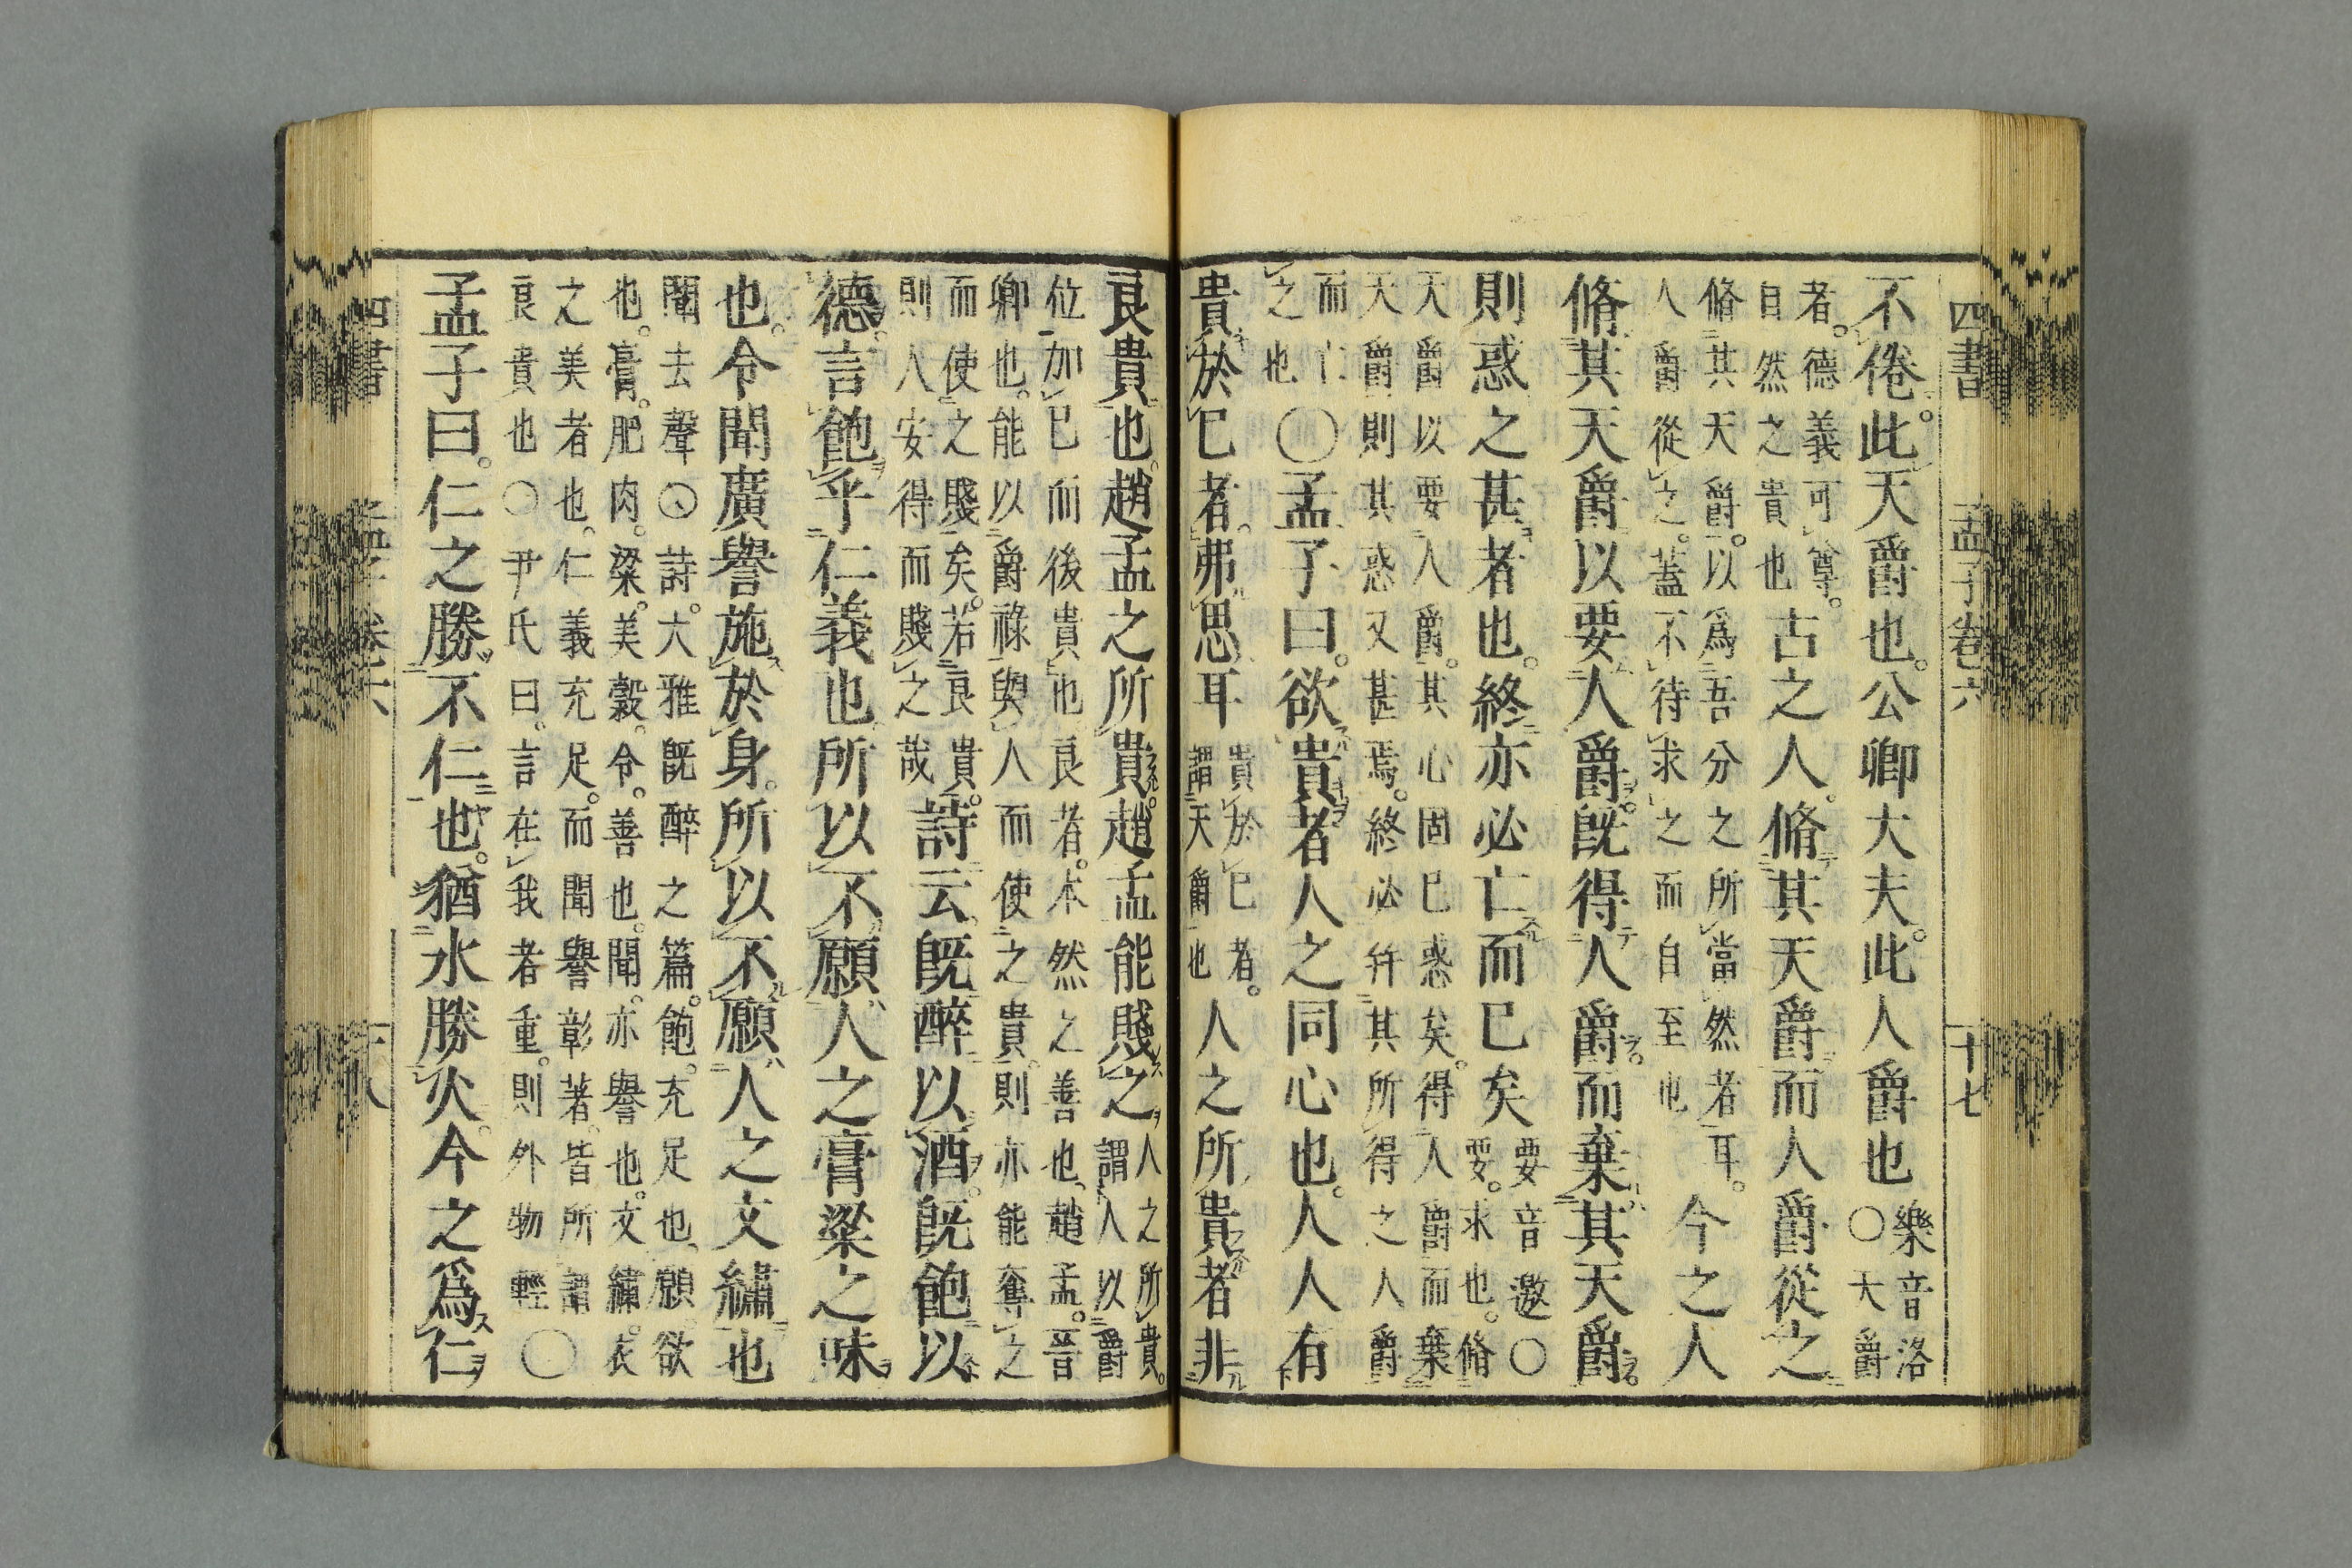 四書　孟子卷六　十七
不倦。此天爵也。公卿大夫。此人爵也
樂音洛
〇天爵
者。德義可尊。
自然之貴也
古之人。脩其天爵而人爵從之
脩其天爵。以爲吾分之所當然者耳。
人爵從之。蓋不待求之而自至也
今之人
脩其天爵以要人爵。旣得人爵。而棄其天爵。
則惑之甚者也。終亦必亡而已矣
要音邀〇
要。求也。脩
天爵以要人爵。其心固已惑矣。得人爵而棄
天爵則其惑又甚焉。終必幷其所得之人爵
而亡
之也
〇孟子曰。欲貴者人之同心也。人人有
貴於已者。弗思耳
貴於已者。
謂天爵也
人之所貴者非
良貴也。趙孟之所貴。趙孟能賤之
人之所貴。
謂人以爵
位加已而後貴也良者。本然之善也趙孟。晉
卿也。能以爵祿與人而使之貴。則亦能奪之
而使之賤矣。若良貴。
則人安得而賤之哉
詩云。旣醉以酒。旣飽以
德。言飽乎仁義也所以不願人之膏粱之味
也。令聞廣譽施於身。所以不願人之文繡也
聞去聲〇詩。大雅旣醉之篇。飽。充足也願。欲
也。膏。肥肉。粱。美穀。令。善也。聞。亦譽也。文繡。衣
之美者也。仁義充足。而聞譽彰著。皆所謂
良貴也〇尹氏曰。言在我者重。則外物輕
〇
孟子曰。仁之勝不仁也。猶水勝火。今之爲仁
四書　孟子卷六　十八